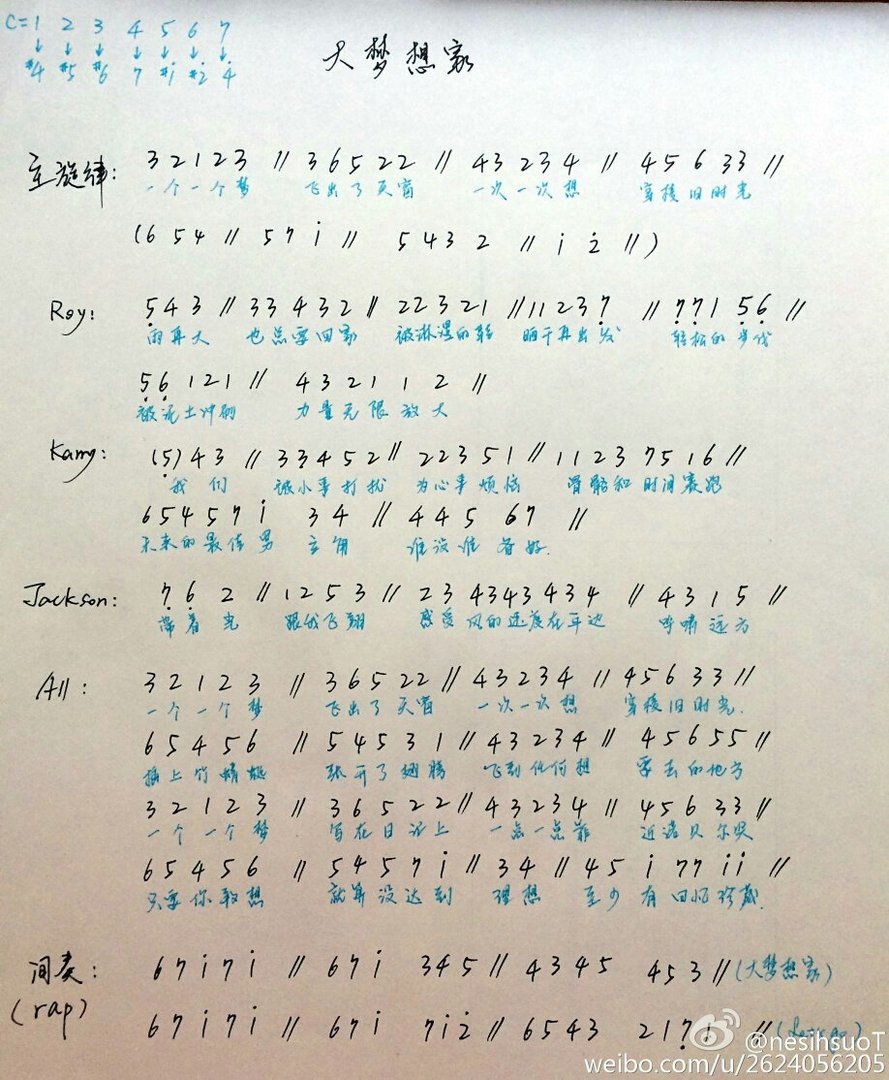 C=1 2 3 4 5 6 7
↓ ↓ ↓ ↓ ↓ ↓ ↓
#4 #5 #6 7 #i #2̇ 4̇
大梦想家
主旋律: 3 2 1 2 3 // 3 6 5 2 2 // 4 3 2 3 4 // 4 5 6 3 3 //
一个一个梦 飞出了天窗 一次一次想 穿梭旧时光
(6 5 4 // 5 7 i // 5 4 3 2 // i 2̇ //)
Roy: 5̣ 4 3 // 3 3 4 3 2 // 2 2 3 2 1 // 1 1 2 3 7̣ // 7̣ 7̣ 1 5̣ 6̣ //
雨再大 也总要回家 被淋湿的鞋 晒干再出发 轻松的步伐
5̣ 6̣ 1 2 1 // 4 3 2 1 1 2 //
被泥土冲刷 力量无限放大
Karry: (5̣) 4 3 // 3 3 4 5 2 // 2 2 3 5 1 // 1 1 2 3 7 5 1 6 //
我们 被小事打扰 为心事烦恼 滑鞋和时间赛跑
6 5 4 5 7 i 3 4 // 4 4 5 6 7 //
未来的最佳男主角 谁没准备好.
Jackson: 7̣ 6̣ 2 // 1 2 5 3 // 2 3 4 3 4 3 4 3 4 // 4 3 1 5 //
带着光 跟我飞翔 感受风的速度在耳边 呼啸远方
All: 3 2 1 2 3 // 3 6 5 2 2 // 4 3 2 3 4 // 4 5 6 3 3 //
一个一个梦 飞出了天窗 一次一次想 穿梭旧时光.
6 5 4 5 6 // 5 4 5 3 1 // 4 3 2 3 4 // 4 5 6 5 5 //
插上竹蜻蜓 张开了翅膀 飞到任何想 要去的地方
3 2 1 2 3 // 3 6 5 2 2 // 4 3 2 3 4 // 4 5 6 3 3 //
一个一个梦 写在日记上 一点一点靠 近诺贝尔奖
6 5 4 5 6 // 5 4 5 7 i // 3 4 // 4 5 i 7 7 i i //
只要你敢想 就算没达到 理想 至少有回忆珍藏.
间奏: 6 7 i 7 i // 6 7 i 3 4 5 // 4 3 4 5 4 5 3 // (大梦想家)
(rap) 6 7 i 7 i // 6 7 i 7 i 2̇ // 6 5 4 3 2 1 7̣ 1 // (Let's go)
@nesihsuoT
weibo.com/u/2624056205